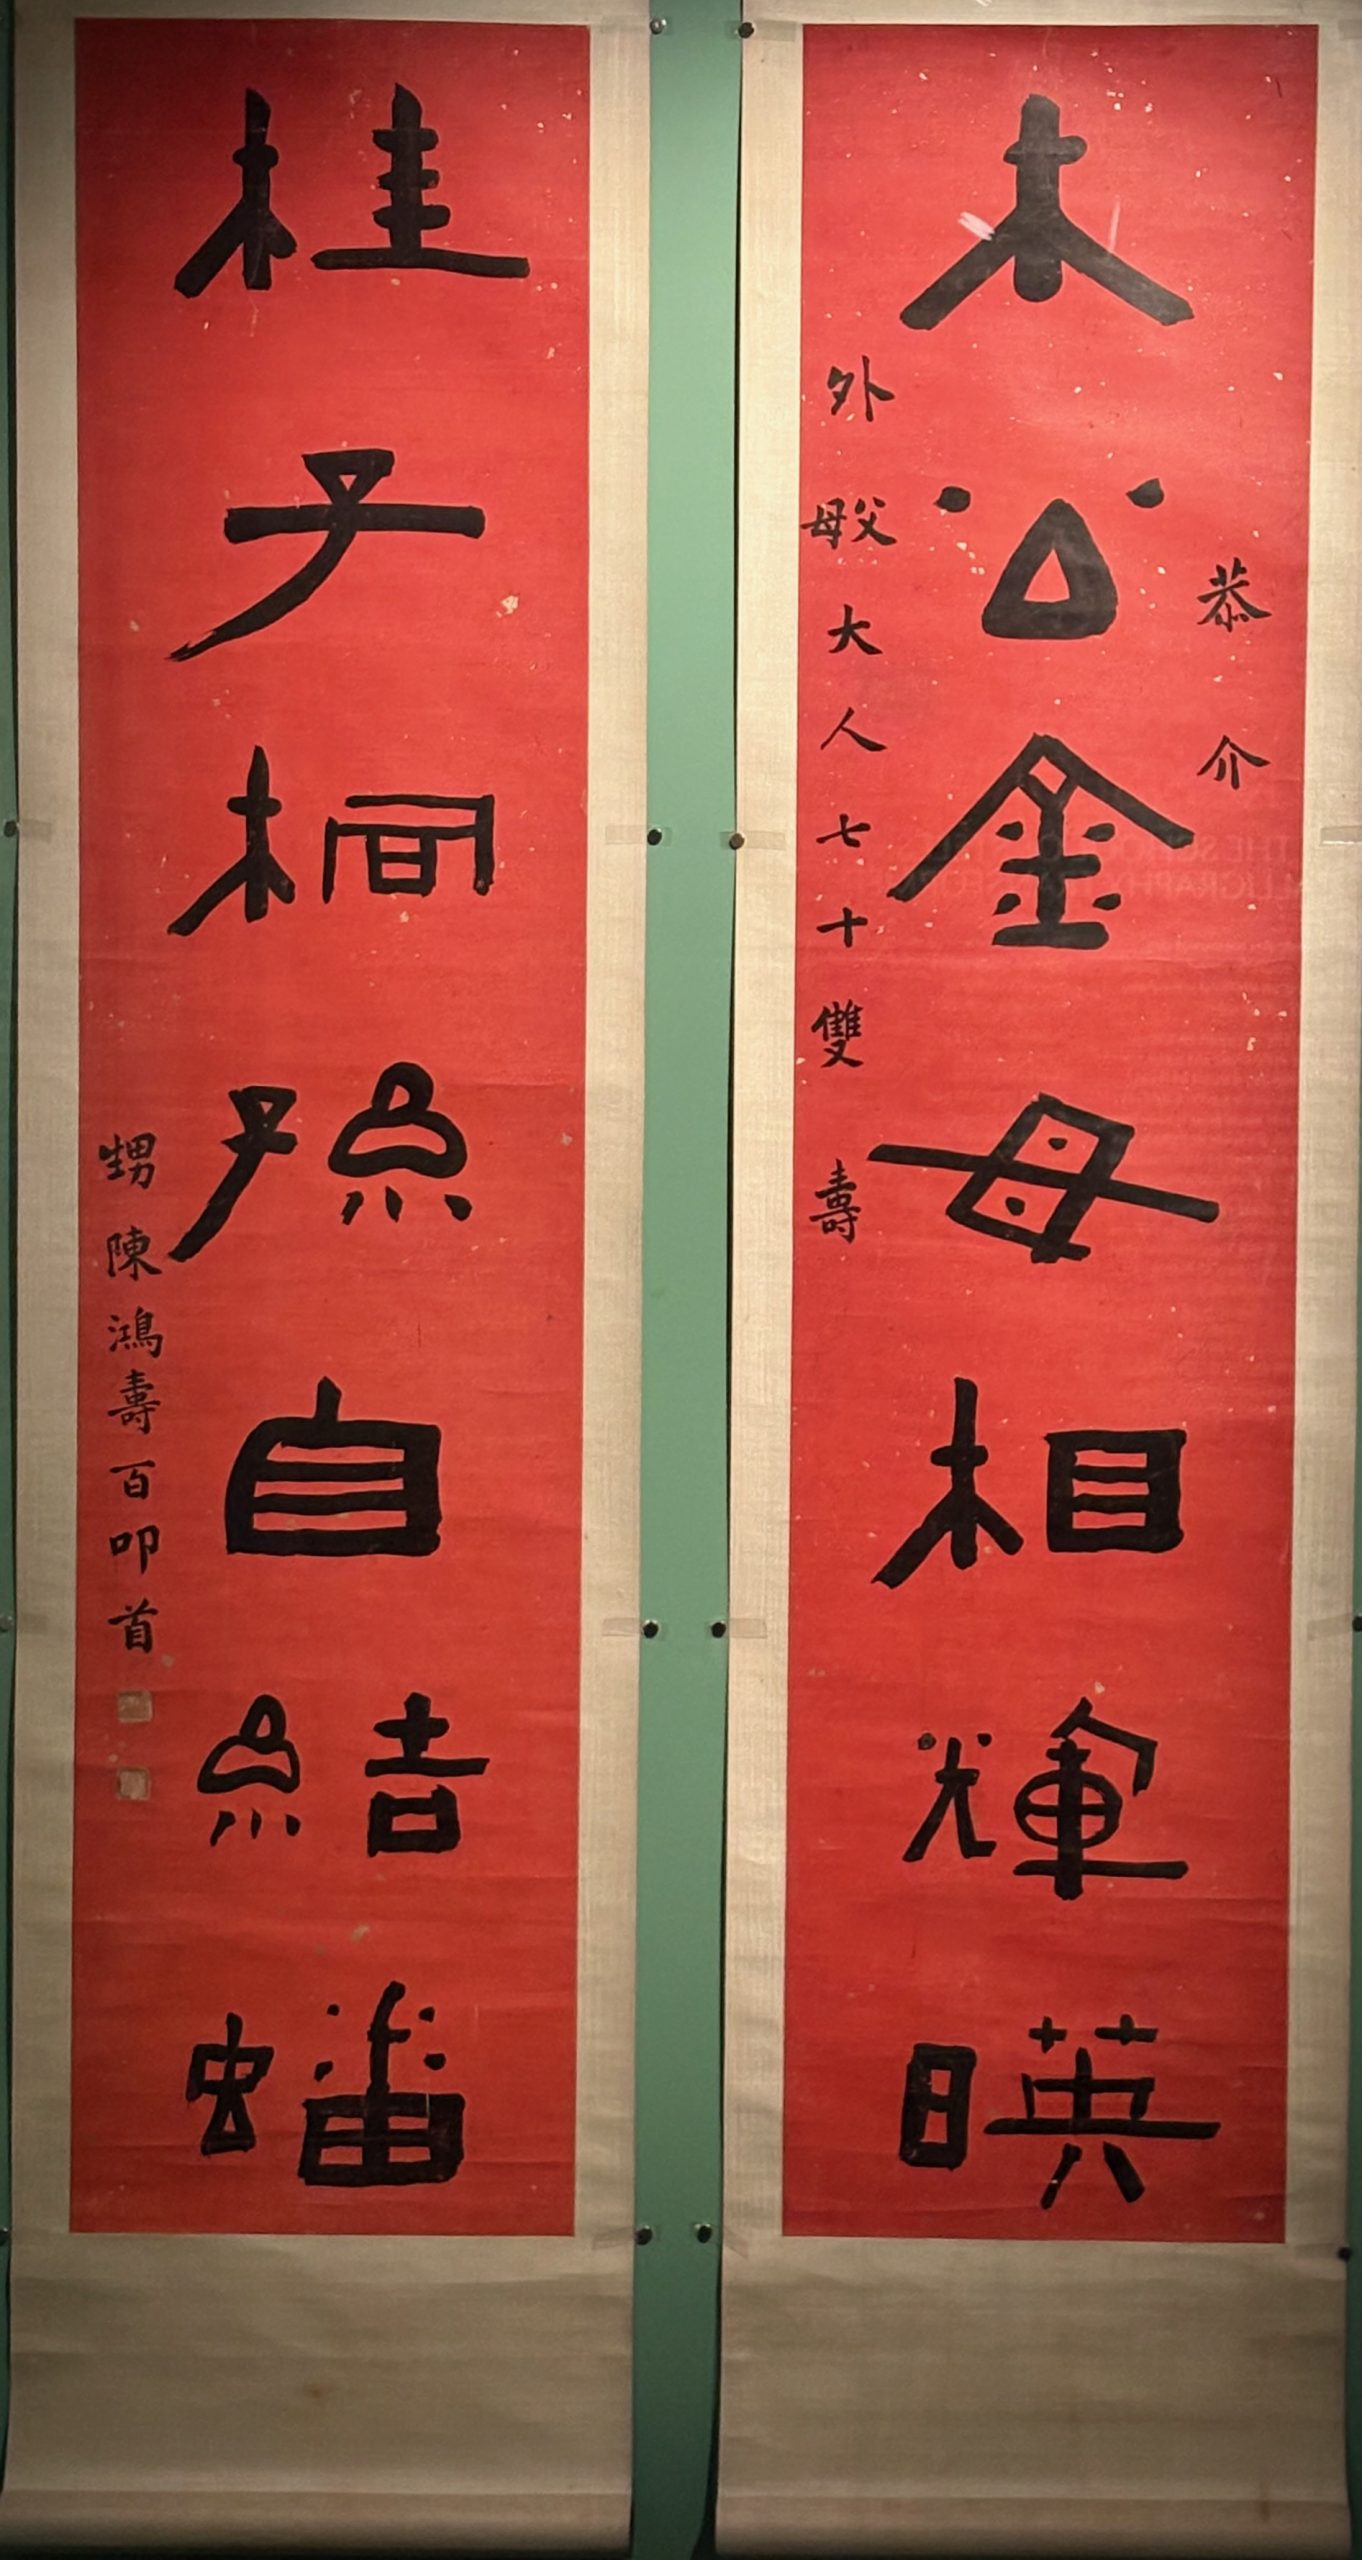 木公金母相輝映
恭介
外父母大人七十雙壽
桂子桐孫自結蟠
甥陳鴻壽百叩首